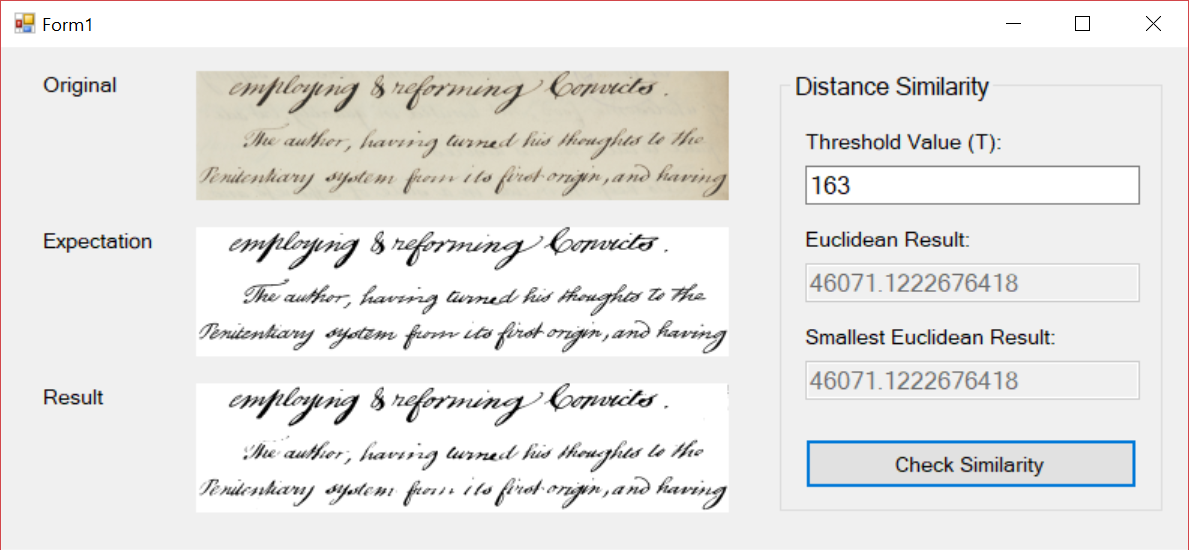 Form1
Original
employing & reforming Convicts.
The author, having turned his thoughts to the
Penitentiary system from its first origin, and having
Expectation
employing & reforming Convicts.
The author, having turned his thoughts to the
Penitentiary system from its first origin, and having
Result
employing & reforming Convicts.
The author, having turned his thoughts to the
Penitentiary system from its first origin, and having
Distance Similarity
Threshold Value (T):
163
Euclidean Result:
46071.1222676418
Smallest Euclidean Result:
46071.1222676418
Check Similarity